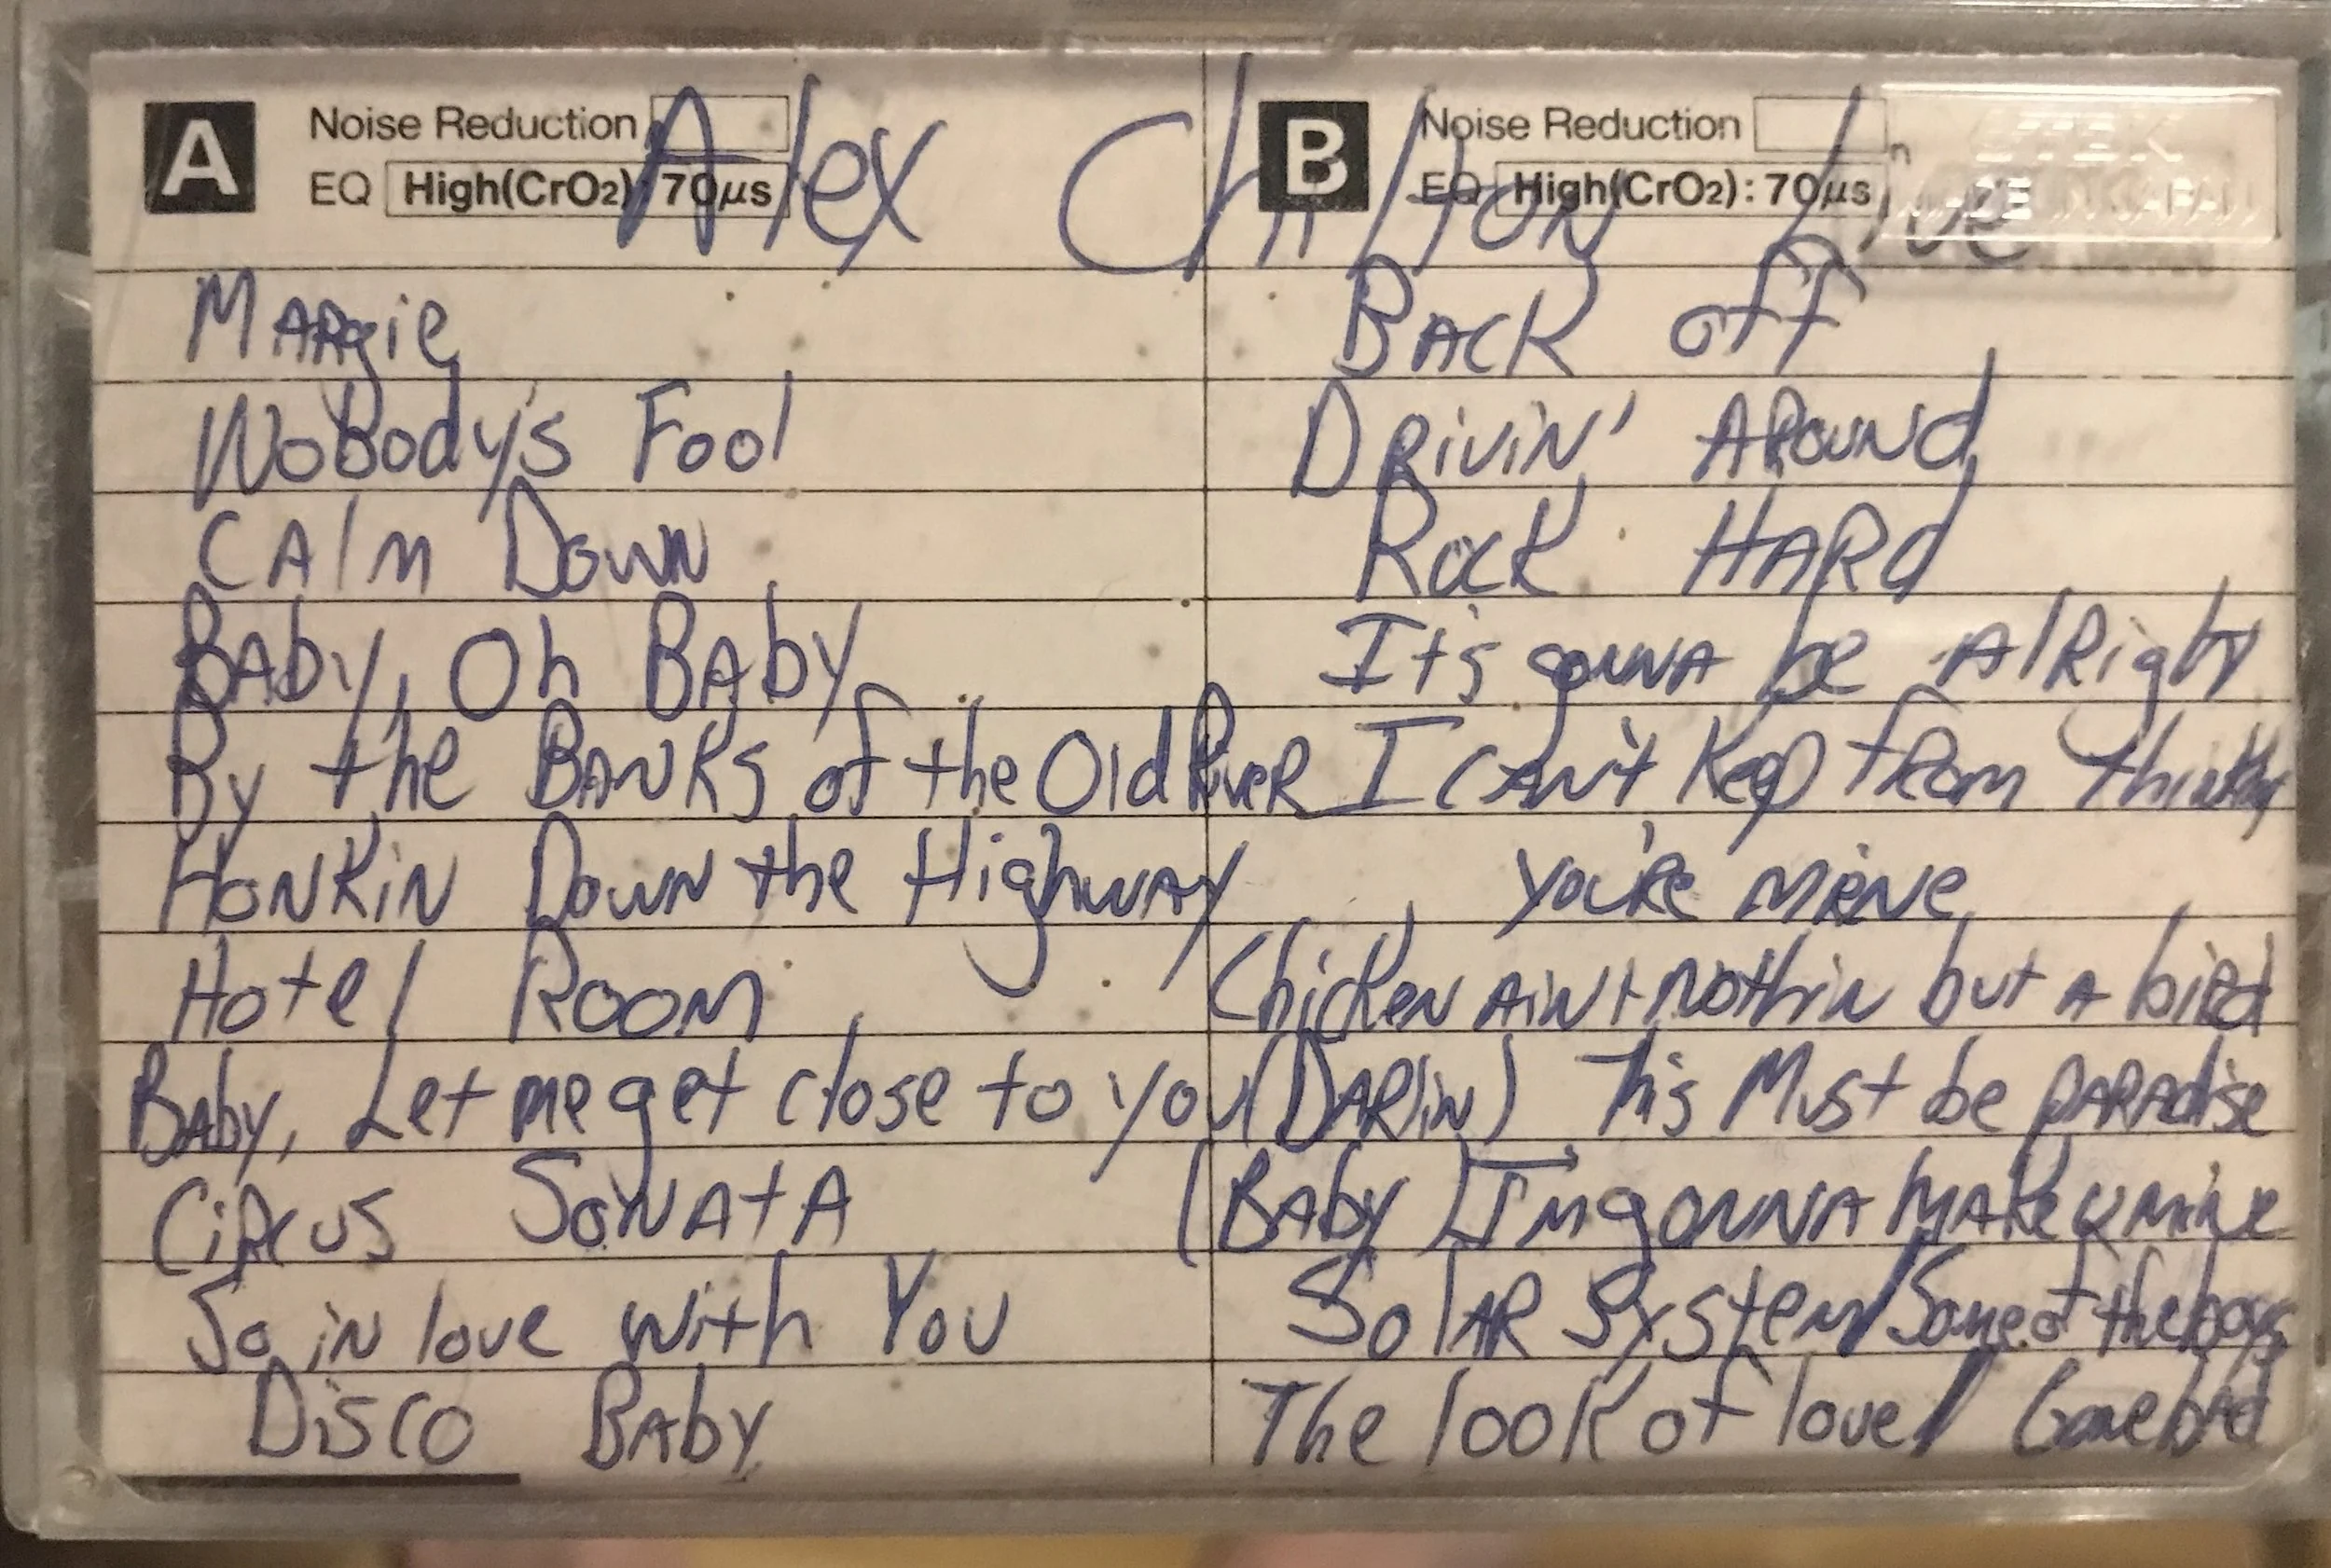 Alex Chilton Live
A
Noise Reduction
EQ High(CrO2): 70μs
Margie
Wobody's Fool
Calm Down
Baby, Oh Baby
By the Banks of the Old River
Honkin Down the Highway
Hotel Room
Baby, Let me get close to you
Circus Sonata
So in love with You
Disco Baby
B
Noise Reduction
EQ High(CrO2): 70μs
Back off
Drivin' Around
Rock Hard
It's gonna be Alright
I can't Keep from thinking
you're mine
Chicken ain't nothin but a bird
(Darlin) This Must be paradise
(Baby) → I'm gonna make u mine
Solar System/Some of the boys
The look of love/ Gone bad